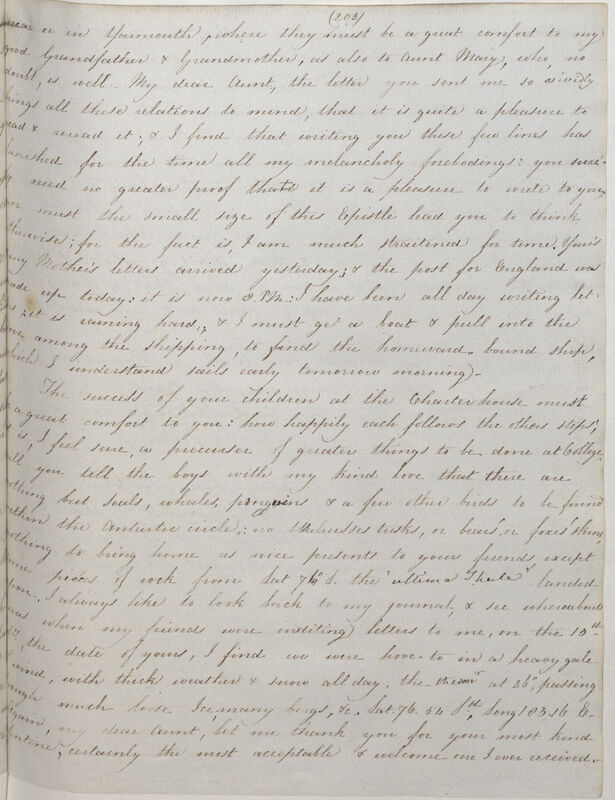 (203)
near or in Yarmouth, where they must be a great comfort to my
good Grandfather & Grandmother, as also to Aunt Mary, who, no
doubt, is well. My dear Aunt, the letter you sent me so vividly
brings all these relations to mind, that it is quite a pleasure to
read & reread it; & I find that writing you these few lines has
banished for the time all my melancholy forebodings: you sure-
ly need no greater proof that it is a pleasure to write to you,
nor must the small size of this Epistle lead you to think
otherwise; for the fact is, I am much straitened for time. Your's
& my Mother's letters arrived yesterday; & the post for England was
made up today: it is now 8. P.M.: I have been all day writing let-
ters; it is raining hard, & I must get a boat & pull into the
cove among the shipping, to find the homeward-bound ship,
which I understand sails early tomorrow morning)-
The success of your children at the Charterhouse must
be a great comfort to you: how happily each follows the others steps;
it is, I feel sure, a precursor of greater things to be done at College.
Will you tell the boys with my kind love that there are
nothing but seals, whales, penguins & a few other birds to be found
within the Antarctic circle: no Walrusses tusks, or bears', or foxes' skins
nothing to bring home as nice presents to your friends, except
some pieces of rock from Lat 74° S. the "ultima Thule" landed
upon. I always like to look back to my journal, & see whereabout
I was when my friends were inditing letters to me, on the 10th
the date of yours, I find we were hove-to in a heavy gale
wind, with thick weather & snow all day, the therm^r at 26°, passing
through much loose Ice, many bergs, &c. Lat. 76. 54 Sth, Long 183.16 E.
Again, my dear Aunt, let me thank you for your most kind
Valentine, certainly the most acceptable & welcome one I ever received.-